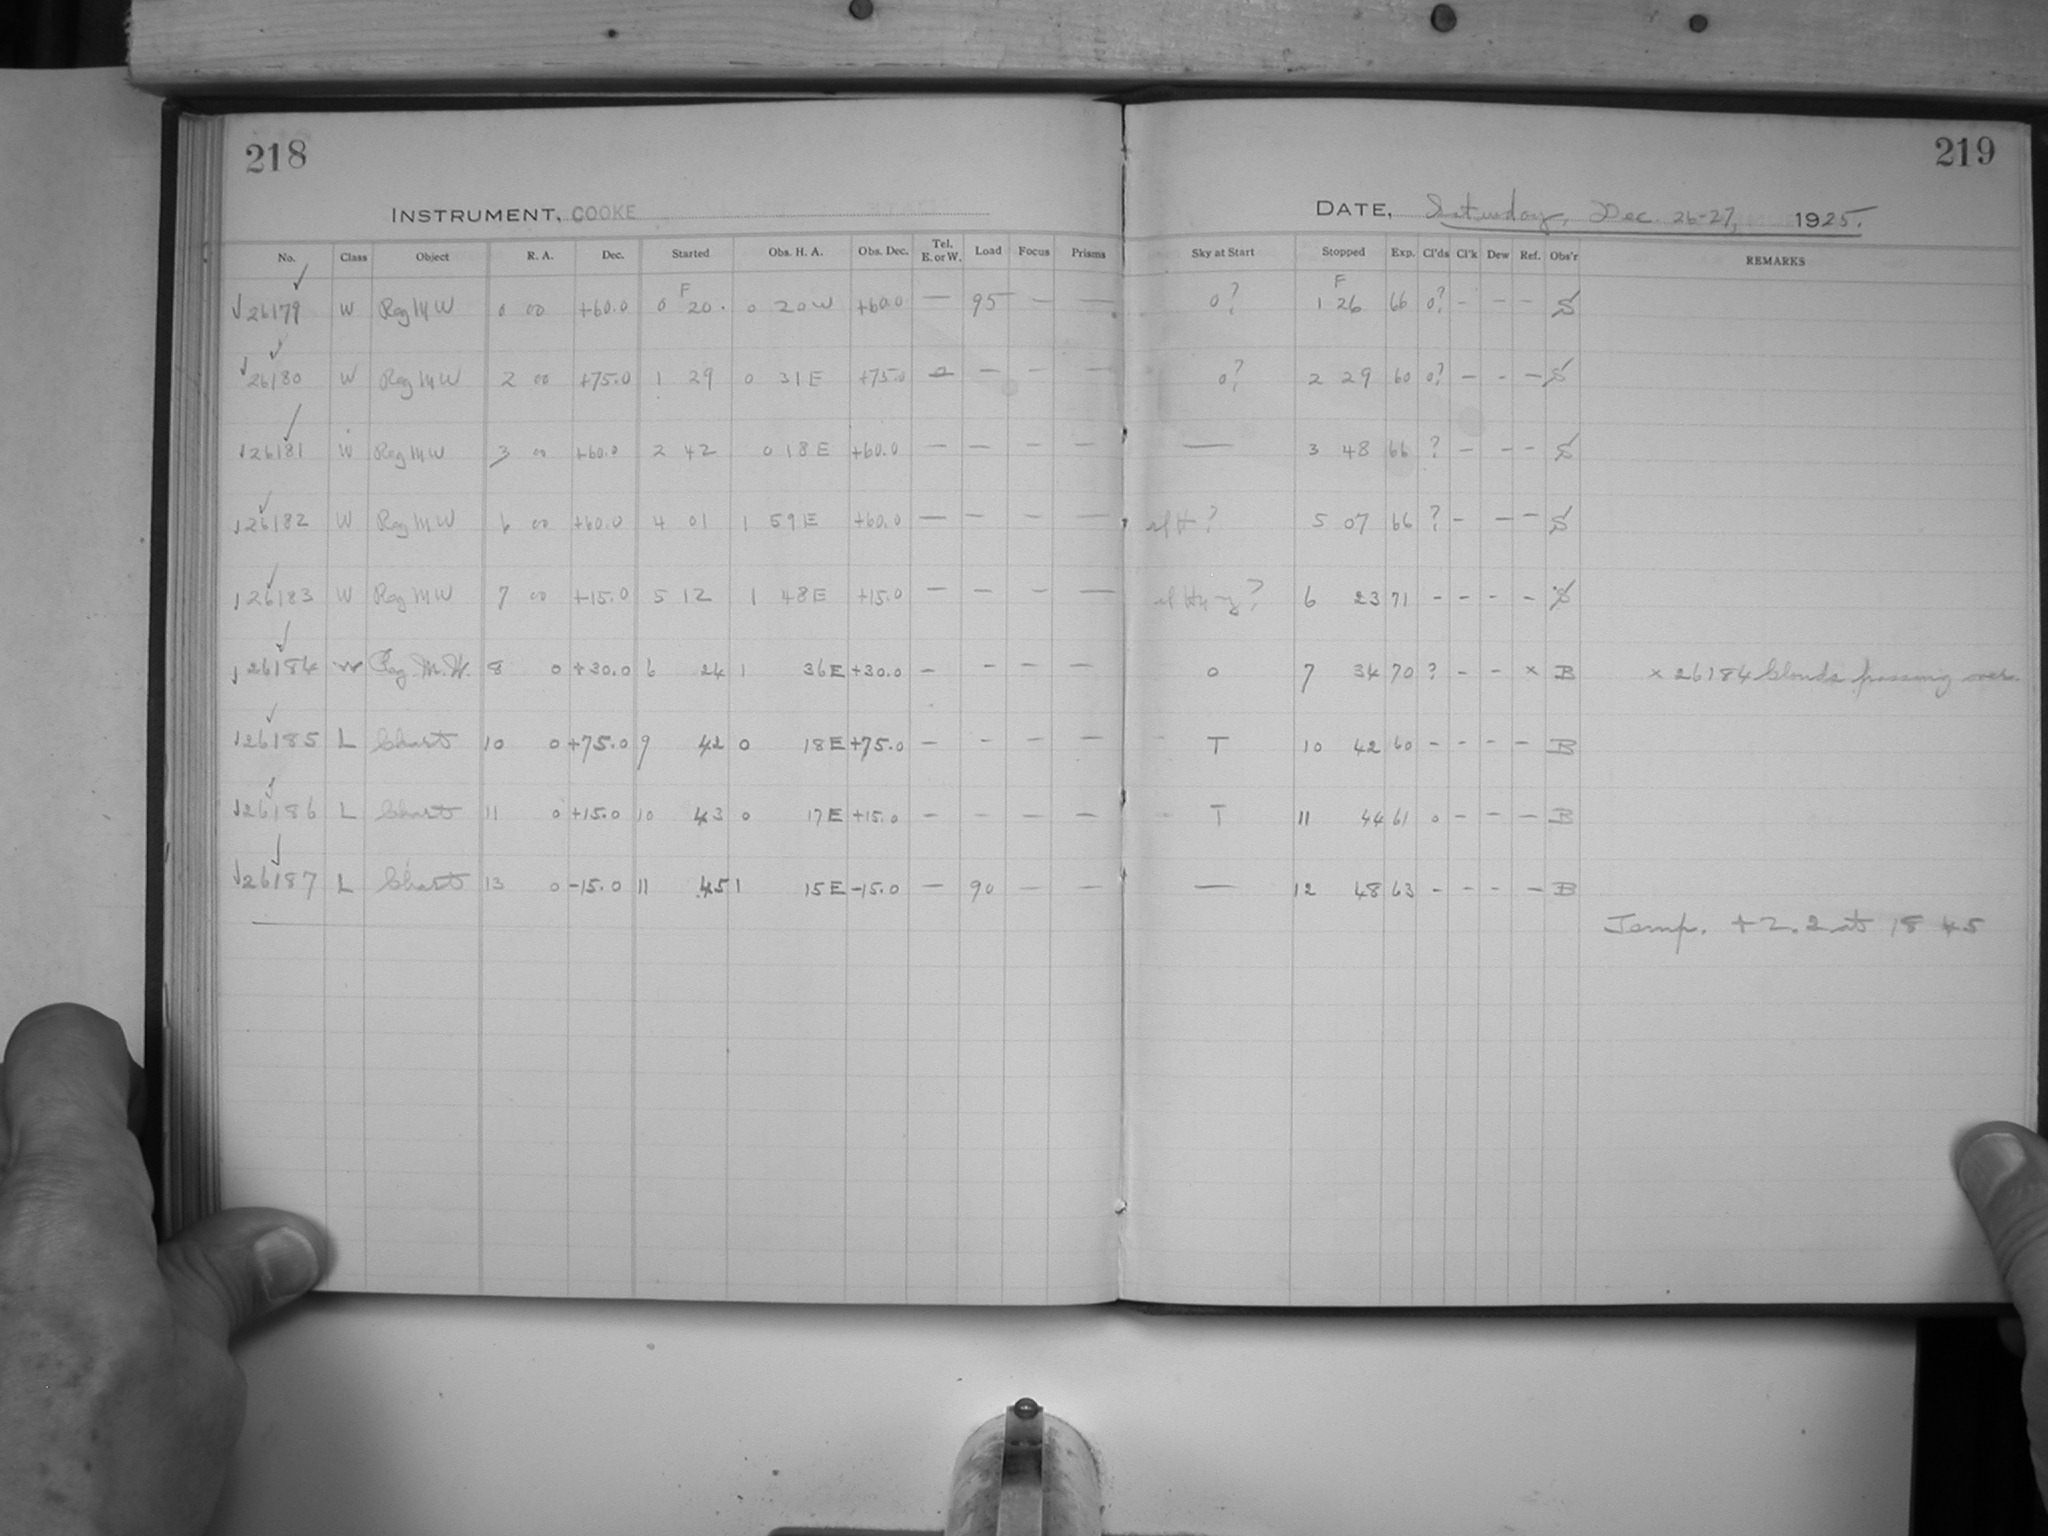 218
219
INSTRUMENT, COOKE
DATE, Saturday, Dec. 26-27, 1925.
No. Class Object R. A. Dec. Started Obs. H. A. Obs. Dec. Tel. E. or W. Load Focus Prisms Sky at Start Stopped Exp. Cl'ds Cl'k Dew Ref. Obs'r REMARKS
F F
√26179 W Reg MW 0 00 +60.0 0 20. 0 20 W +60.0 — 95 — — 0? 1 26 66 0? - - - S
√26180 W Reg MW 2 00 +75.0 1 29 0 31 E +75.0 — — — — 0? 2 29 60 0? - - - S
√26181 W Reg MW 3 00 +60.0 2 42 0 18 E +60.0 — — — — — 3 48 66 ? - - - S
√26182 W Reg MW 6 00 +60.0 4 01 1 59 E +60.0 — — — — ? 5 07 66 ? - - - S
√26183 W Reg MW 7 00 +15.0 5 12 1 48 E +15.0 — — — — ? 6 23 71 - - - - S
√26184 W Reg. M.W. 8 0 +30.0 6 24 1 36 E +30.0 - - - - 0 7 34 70 ? - - x B x 26184 Clouds passing over.
√26185 L Chart 10 0 +75.0 9 42 0 18 E +75.0 - - - - T 10 42 60 - - - - B
√26186 L Chart 11 0 +15.0 10 43 0 17 E +15.0 - - - - T 11 44 61 0 - - - B
√26187 L Chart 13 0 -15.0 11 45 1 15 E -15.0 - 90 - - — 12 48 63 - - - - B
Temp. +2.2 at 18 45